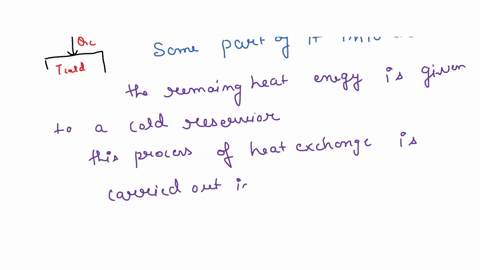 Qc
Tcold
Some part of it into
the remaing heat enegy is given
to a cold reservior
this process of heat exchange is
carried out i